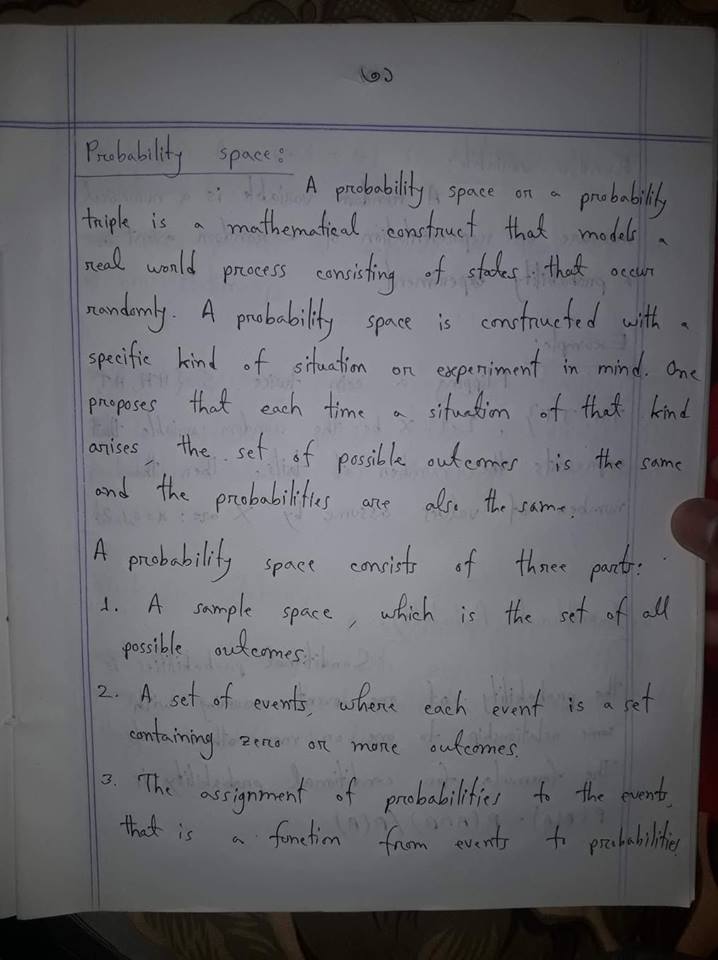 (৩)
Probability space:
A probability space or a probability
triple is a mathematical construct that models a
real world process consisting of states that occur
randomly. A probability space is constructed with a
specific kind of situation or experiment in mind. One
proposes that each time a situation of that kind
arises, the set of possible outcomes is the same
and the probabilities are also the same.
A probability space consists of three parts:
1. A sample space, which is the set of all
possible outcomes.
2. A set of events, where each event is a set
containing zero or more outcomes.
3. The assignment of probabilities to the events,
that is a function from events to probabilities.